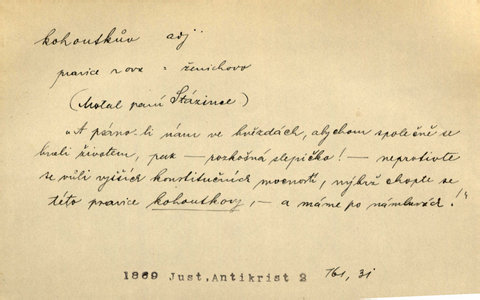 kohoutkův adj.
pravice rova = ženichova
(Motal paní Stázince)
„A psáno-li nám ve hvězdách, abychom společně se
brali životem, pak — rozkošná slepičko! — neprotivte
se vůli vyšších konstitučních mocností, nýbrž chopte se
této pravice kohoutkovy, — a máme po námluvách!"
1869 Just, Antikrist 2 161, 31